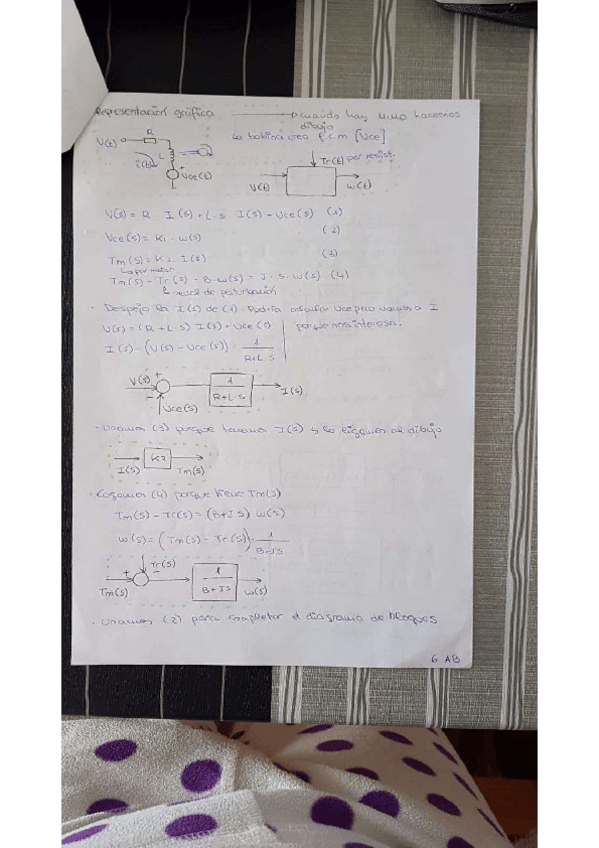 Representación gráfica → cuando hay lo hacemos
dibujo
La bobina crea f.c.m [Vce]
R
V(t)
i(t)
L
Vce(t)
Tr(t) par resist.
V(t)
ω(t)
V(s) = R · I(s) + L·s · I(s) + Vce(s) (1)
Vce(s) = K1 · ω(s) (2)
Tm(s) = K2 · I(s) (3)
↳ par motor
Tm(s) - Tr(s) - B·ω(s) = J · s · ω(s) (4)
↳ señal de perturbación
· Despejo la I(s) de (1). Podría calcular Vce pero vamos a I
V(s) = (R + L·s) I(s) + Vce(s) porque nos interesa.
I(s) = (V(s) - Vce(s)) · 1
R+L·s
V(s) + 1
R+L·s
I(s)
- Vce(s)
· Usamos (3) porque tenemos I(s) y lo ligamos al dibujo
K2
I(s) Tm(s)
· Cogemos (4) porque tiene Tm(s)
Tm(s) - Tr(s) = (B+JS) ω(s)
ω(s) = (Tm(s) - Tr(s)) · 1
B+JS
Tr(s)
+ -
Tm(s)
1
B+JS
ω(s)
· Usamos (2) para completar el diagrama de bloques
6 AB